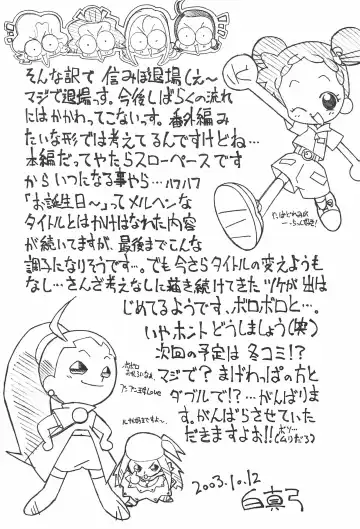 そんな訳で 信みは退場しぇ〜
マジで退場っす。今後しばらくの流れ
にはかかわってこないっす。番外編み
たいな形では考えてるんですけどね…
本編だってやたらスローペースです
からいつになる事やら…ハフハフ
「お誕生日〜」ってメルヘンな
タイトルとはかけはなれた内容
が続いてますが、最後までこんな
調子になりそうです。でも今さらタイトルの変えようも
なし…さんざ考えなしに描き続けてきたツケが出は
じめてるようです、ボロボロと…。
いやホントどうしましょう(笑)
次回の予定は冬コミ!?
マジで?まげわっぱの方と
ダブルで!?…がんばりま
す。がんばらさせていた
だきますよお!!
ボソ…
(ムリだろ)
2003.10.12
白真弓